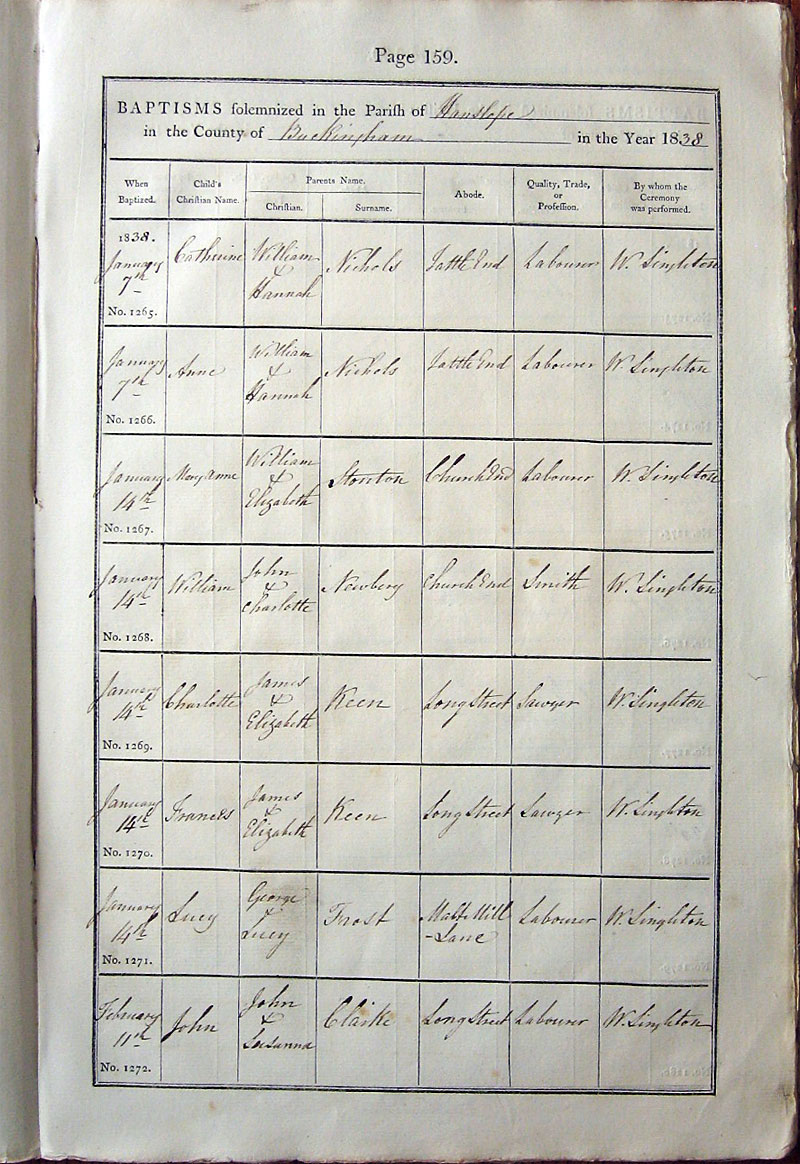 Page 159.
BAPTISMS solemnized in the Parish of Hanslope
in the County of Buckingham in the Year 1838
When Baptized. Child's Christian Name. Parents Name. Christian. Surname. Abode. Quality, Trade, or Profession. By whom the Ceremony was performed.
1838.
January 7th Catherine William & Hannah Nichols Tattle End Labourer W. Singleton
No. 1265.
January 7th Anne William & Hannah Nichols Tattle End Labourer W. Singleton
No. 1266.
January 14th Mary Anne William & Elizabeth Stonton Church End Labourer W. Singleton
No. 1267.
January 14th William John & Charlotte Newbery Church End Smith W. Singleton
No. 1268.
January 14th Charlotte James & Elizabeth Keen Long Street Sawyer W. Singleton
No. 1269.
January 14th Frances James & Elizabeth Keen Long Street Sawyer W. Singleton
No. 1270.
January 14th Lucy George & Lucy Frost Malt Mill -Lane Labourer W. Singleton
No. 1271.
February 11th John John & Susanna Clarke Long Street Labourer W. Singleton
No. 1272.